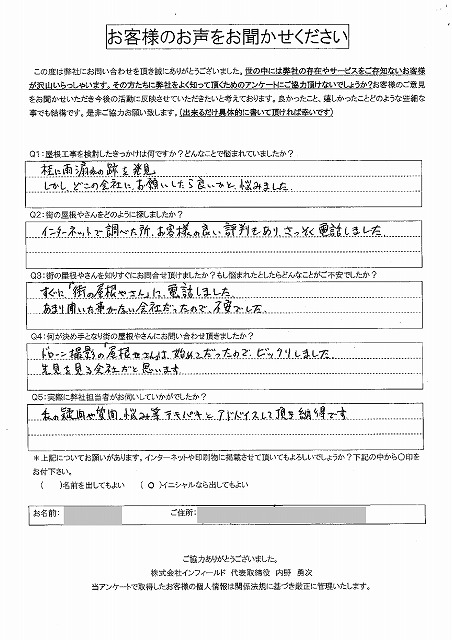 お客様のお声をお聞かせください
この度は弊社にお問い合わせを頂き誠にありがとうございました。世の中には弊社の存在やサービスをご存知ないお客様
が沢山いらっしゃいます。その方たちに弊社をよく知って頂くためのアンケートにご協力頂けないでしょうか?お客様のご意見
をお聞かせいただき今後の活動に反映させていただきたいと考えております。良かったこと、嬉しかったことどのような些細な
事でも結構です。是非ご協力お願い致します。(出来るだけ具体的に書いて頂ければ幸いです)
Q1:屋根工事を検討したきっかけは何ですか?どんなことで悩まれていましたか?
柱に雨漏れの跡を発見
しかし、どこの会社に、お願いしたら良いかと、悩みました
Q2:街の屋根やさんをどのように探しましたか?
インターネットで調べた所、お客様の良い評判もあり、さっそく電話しました
Q3:街の屋根やさんを知りすぐにお問合せ頂けましたか?もし悩まれたとしたらどんなことがご不安でしたか?
すぐに、「街の屋根やさん」に、電話しました
あまり聞いた事がない会社だったので、不安でした
Q4:何が決め手となり街の屋根やさんにお問い合わせ頂きましたか?
ドローン撮影の「屋根やさん」は、始めてだったので、ビックリしました
先見を見る会社だと思います
Q5:実際に弊社担当者がお伺いしていかがでしたか?
私の疑問や質問、悩み等テキパキとアドバイスして頂き納得です
*上記についてお願いがあります。インターネットや印刷物に掲載させて頂いてもよろしいでしょうか?下記の中から〇印を
お付下さい。
( )名前を出してもよい (○)イニシャルなら出してもよい
お名前: ご住所:
ご協力ありがとうございました。
株式会社インフィールド 代表取締役 内野 勇次
当アンケートで取得したお客様の個人情報は関係法規に基づき厳正に管理いたします。